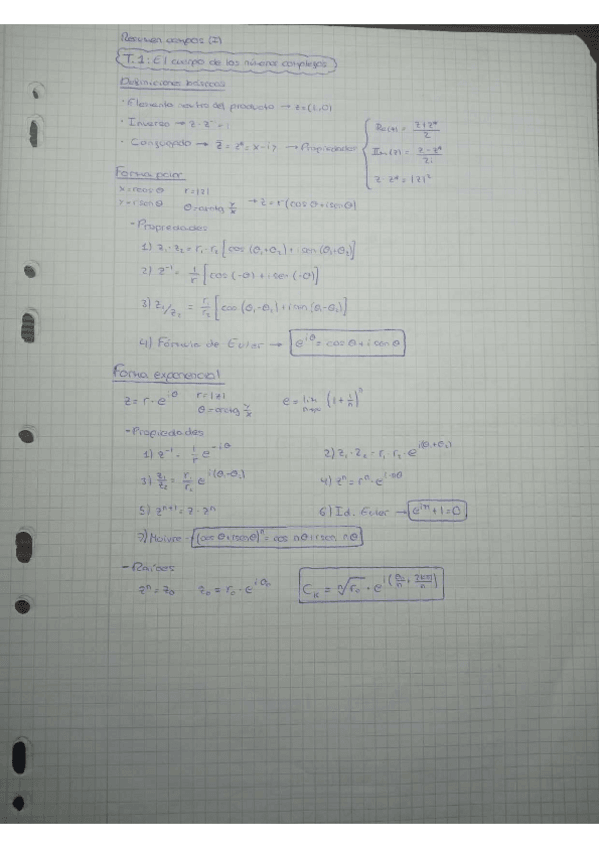 Resumen campos (2)
T.1: El cuerpo de los números complejos
Definiciones básicas
· Elemento neutro del producto → z=(1,0)
· Inverso → z·z⁻¹=1
· Conjugado → z̄=z*=x-iy → Propiedades
Re(z)= (z+z*)/2
Im(z)= (z-z*)/2i
z·z*=|z|²
Forma polar
x=rcosθ r=|z|
y=rsenθ θ=arctg y/x → z=r(cosθ+isenθ)
-Propiedades
1) z₁·z₂=r₁·r₂[cos(θ₁+θ₂)+isen(θ₁+θ₂)]
2) z⁻¹= 1/r [cos(-θ)+isen(-θ)]
3) z₁/z₂ = r₁/r₂ [cos(θ₁-θ₂)+isen(θ₁-θ₂)]
4) Fórmula de Euler → e^{iθ}=cosθ+isenθ
Forma exponencial
z=r·e^{iθ} r=|z| θ=arctg y/x e=lim n→∞ (1+1/n)^n
-Propiedades
1) z⁻¹= 1/r e^{-iθ} 2) z₁·z₂=r₁·r₂·e^{i(θ₁+θ₂)}
3) z₁/z₂= r₁/r₂ e^{i(θ₁-θ₂)} 4) z^n=r^n·e^{inθ}
5) z^{n+1}=z·z^n 6) Id. Euler → e^{iπ}+1=0
7) Moivre → (cosθ+isenθ)^n=cos nθ+isen nθ
-Raíces
z^n=z₀ z₀=r₀·e^{iθ₀} C_k= ⁿ√r₀·e^{i(θ₀/n + 2kπ/n)}